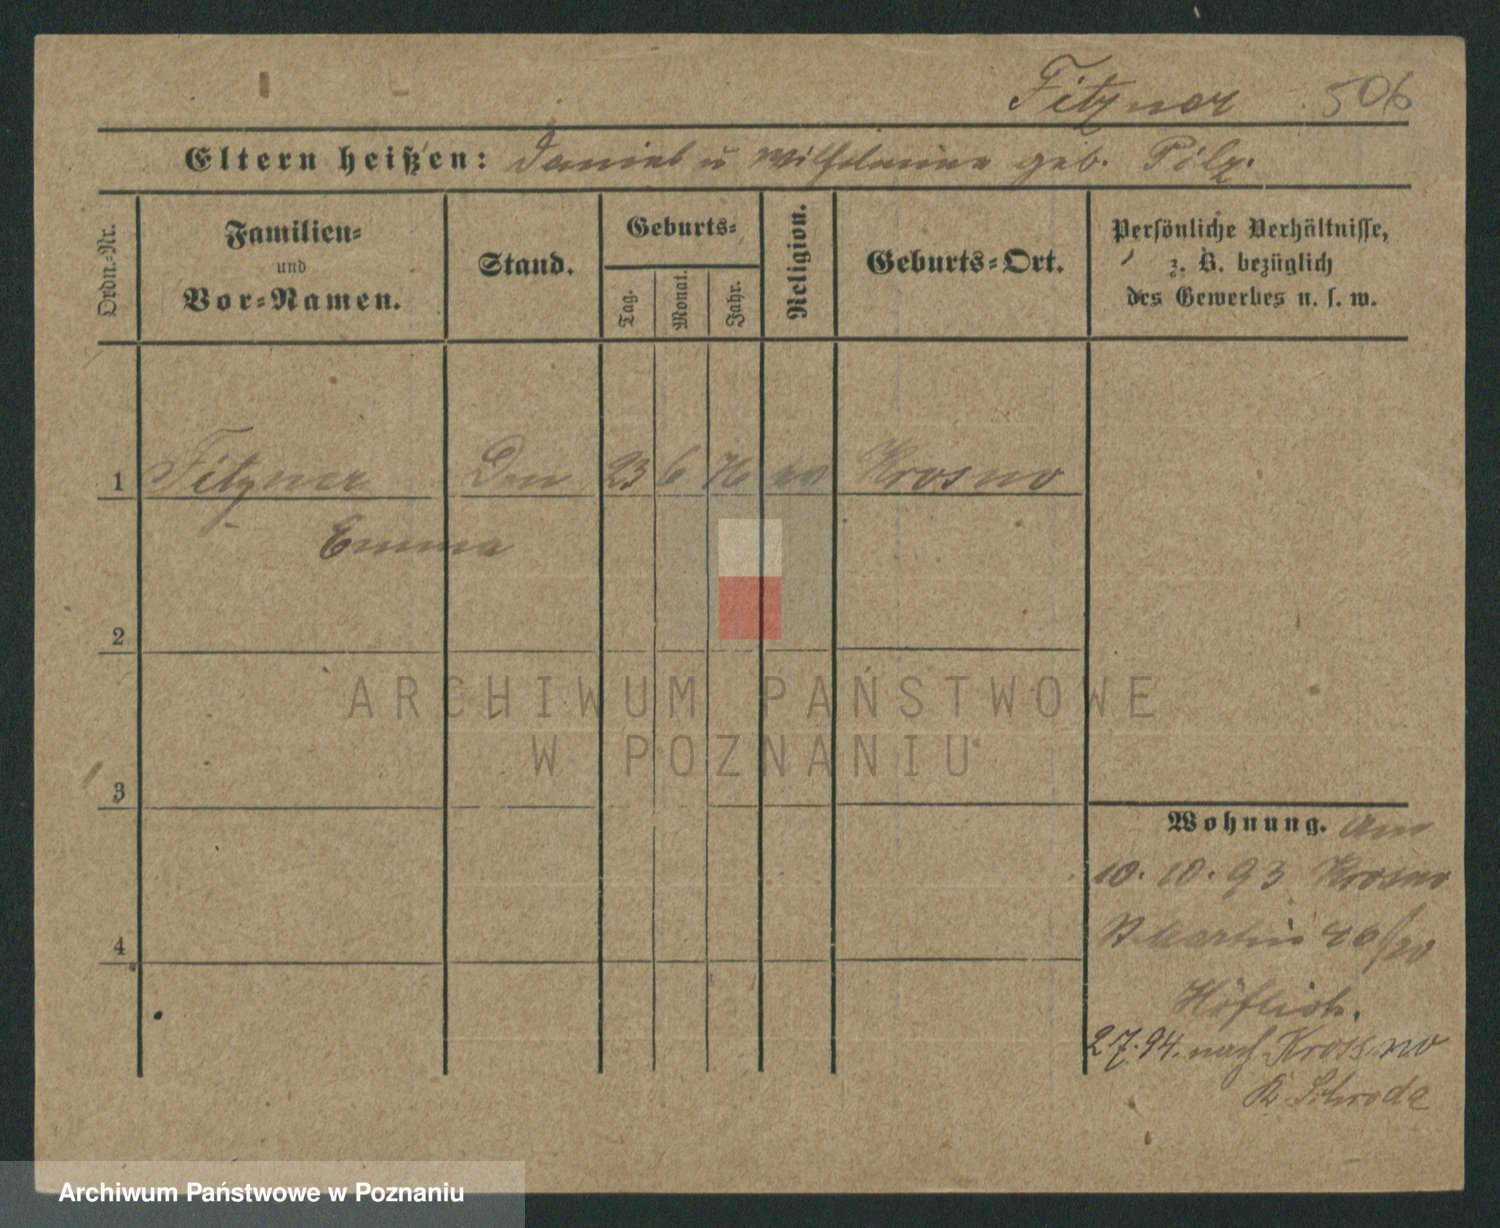 Fitzner 506
Eltern heißen: Daniel u Wilhelmine geb. Pilz.
Ordn.-Nr.
Familien-
und
Vor-Namen.
Stand.
Geburts-
Tag.
Monat.
Jahr.
Religion.
Geburts-Ort.
Persönliche Verhältnisse,
z. B. bezüglich
des Gewerbes u. s. w.
1 Fitzner 23 6 76 Krosno
Emma
2
3
4
Wohnung. Am
10. 10. 93 Krosno
St Martin
Höflich.
2 7. 94. nach Krossno
Kr Schroda
ARCHIWUM PAŃSTWOWE
W POZNANIU
Archiwum Państwowe w Poznaniu